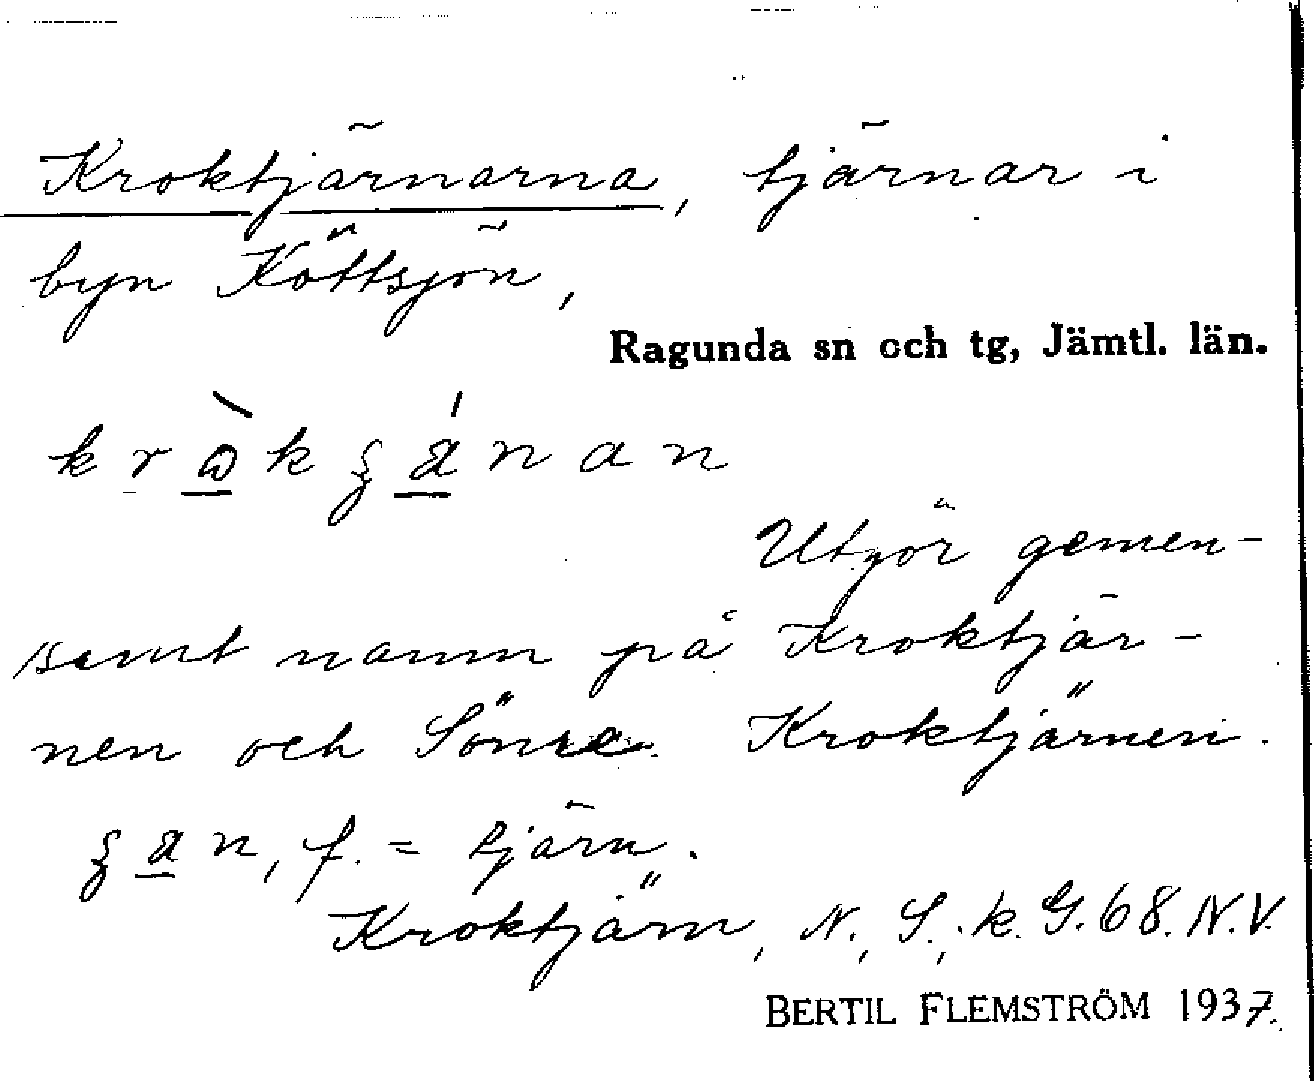 Kroktjärnarna, tjärnar i
byn Köttsjön,
Ragunda sn och tg, Jämtl. län.
Utgör gemen-
samt namn på Kroktjär-
nen och Sönre Kroktjärnen.
f. = tjärn.
Kroktjärn, N., S., k. G. 68. N.V.
BERTIL FLEMSTRÖM 1937.